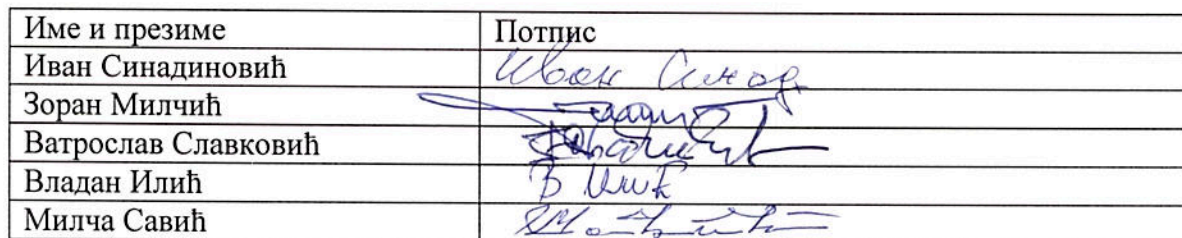 Име и презиме Потпис
Иван Синадиновић Иван Синад
Зоран Милчић
Ватрослав Славковић
Владан Илић В Илић
Милча Савић